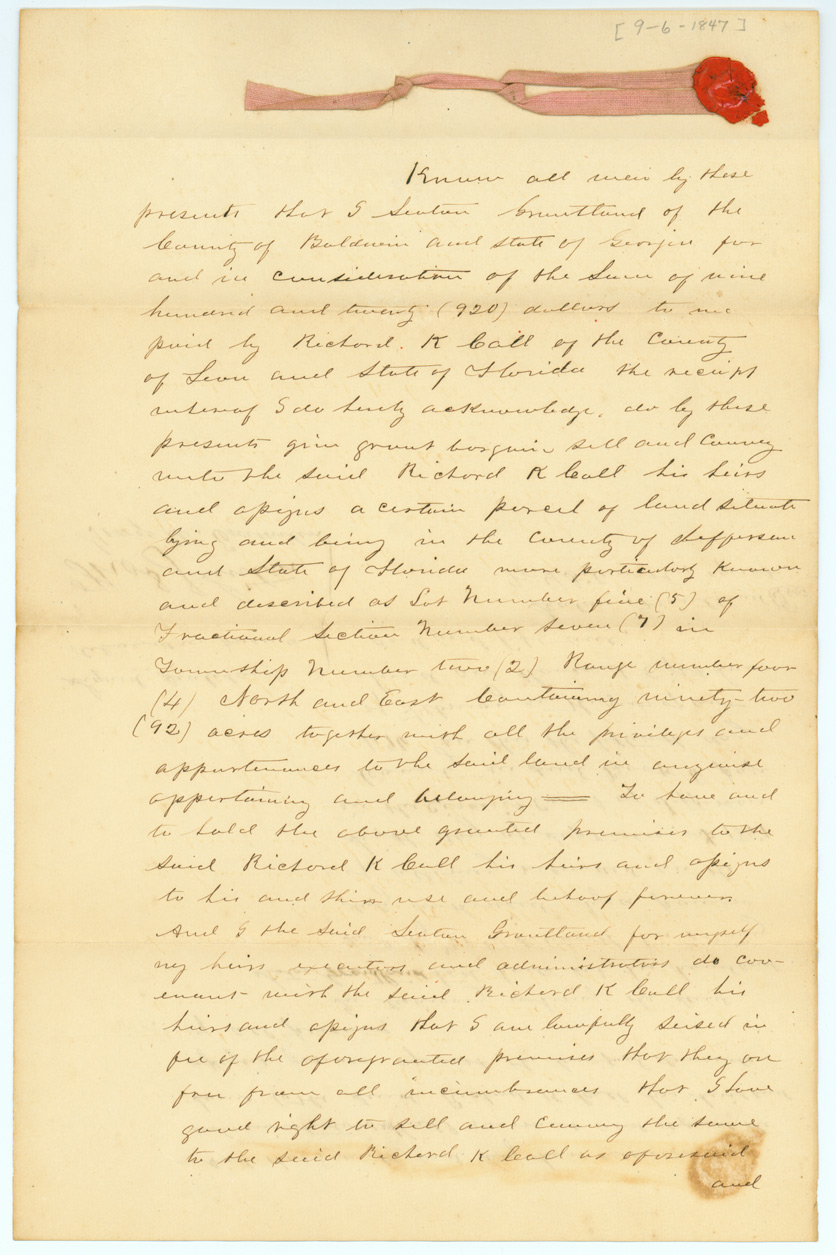 [9-6-1847]
Know all men by these
presents that I Seaton Grantland of the
County of Baldwin and state of Georgia for
and in consideration of the Sum of nine
hundred and twenty (920) dollars to me
paid by Richard. K Call of the County
of Leon and State of Florida the receipt
whereof I do herby acknowledge, do by these
presents give grant bargain sell and Convey
unto the said Richard K Call his heirs
and assigns a certain parcel of land situate
lying and being in the County of Jefferson
and State of Florida more particularly known
and described as Lot Number five (5) of
Fractional Section Number Seven (7) in
Township Number two (2) Range number four
(4) North and East Containing ninety-two
(92) acres together with all the privileges and
appurtenances to the said land in anywise
appertaining and belonging = To have and
to hold the above granted premises to the
said Richard K Call his heirs and assigns
to his and their use and behoof forever.
And I the said Seaton Grantland for myself
my heirs executors and administrators do cov-
enant with the said Richard K Call his
heirs and assigns that I am lawfully seised in
fee of the aforegranted premises that they are
free from all incumbrances that I have
good right to sell and convey the same
to the said Richard K Call as aforesaid
and